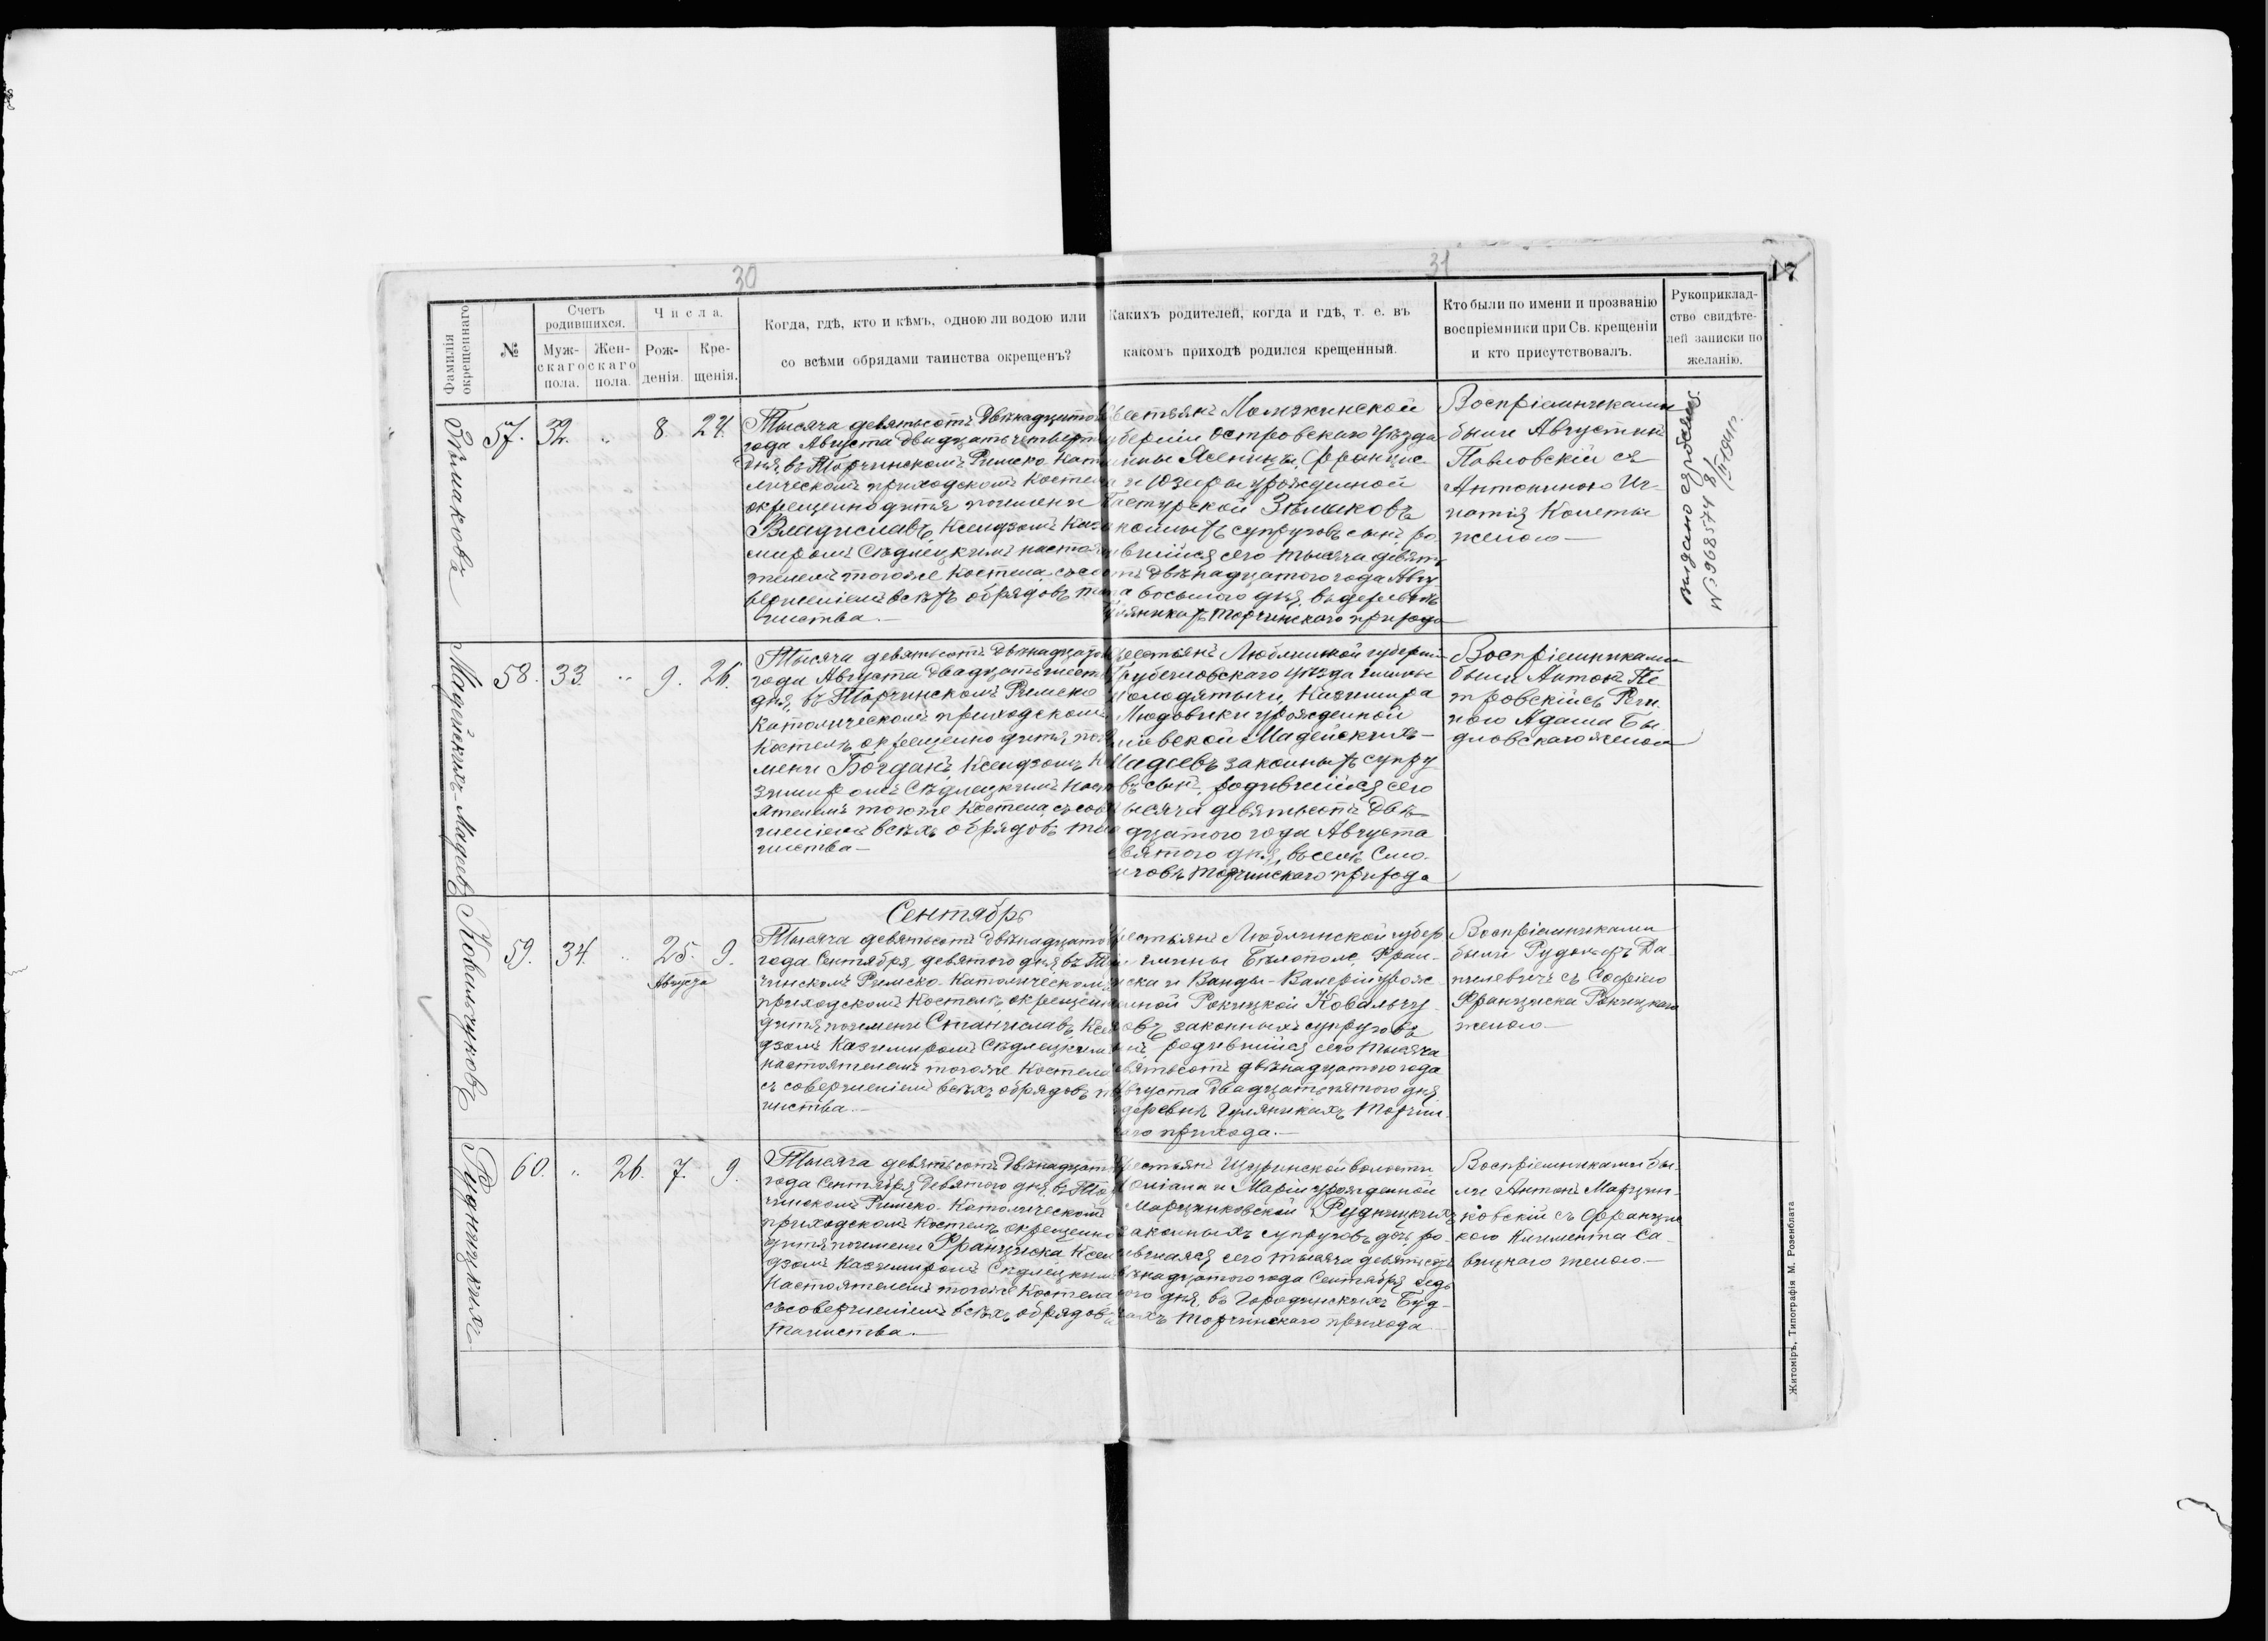 30
31
17
Фамилія окрещеннаго
№
Счетъ родившихся.
Мужскаго пола.
Женскаго пола.
Числа.
Рожденія.
Крещенія.
Когда, гдѣ, кто и кѣмъ, одною ли водою или
со всѣми обрядами таинства окрещенъ?
Какихъ родителей, когда и гдѣ, т. е. въ
какомъ приходѣ родился крещенный.
Кто были по имени и прозванію
воспріемники при Св. крещеніи
и кто присутствовалъ.
Рукоприклад-
ство свидѣте-
лей записки по
желанію.
57. 32. „ 8 24.
Тысяча девятьсотъ двѣнадцатого
года Августа двадцать четверт
дня, въ Торчинскомъ Римско-Като
лическомъ приходскомъ Костел
окрещено дитя по имени
Владиславъ, Ксендзомъ Кази
миромъ Сѣдлецкимъ настоя
телемъ того же Костела, съ со
вершеніемъ всѣхъ обрядовъ та
инства.—
естьянъ Ломжинской
берніи Островскаго уѣзда
мины Ясеницы, Францис
а и Юзефы урожденной
Зѣмаковъ
конныхъ супруговъ сынъ, ро
вшійся сего тысяча девять
отъ двѣнадцатого года Авгу
а восьмого дня, въ деревнѣ
Гуляникахъ Торчинскаго прихода
Воспріемниками
были Августинъ
Павловскій съ
Антониною Иг
натія
женою—
выдано
№ 968574
58. 33. „ 9. 26.
Тысяча девятьсотъ двѣнадцатого
года Августа двадцать шест
дня, въ Торчинскомъ Римско
Католическомъ приходскомъ
Костелѣ окрещено дитя по и
мени Богданъ, Ксендзомъ К
зимиромъ Сѣдлецкимъ насто
ятелемъ того же Костела, съ сов
шеніемъ всѣхъ обрядовъ та
инства—
рестьянъ Люблинской губерніи
Грубешовскаго уѣзда гмины
Молодятычи, Казимира
Людовики урожденной
Мадейскихъ—
Мадеевъ законныхъ супру
въ сынъ, родившійся сего
ысяча девятьсотъ двѣ
дцатого года Августа
евятого дня, въ селѣ Смо
Торчинскаго прихода
Воспріемниками
были Антонъ Пе
тровскій съ Реги
ною Адама Бы
дловскаго женою
Сентябрь
59. 34. „ 25. 9.
Августа
Тысяча девятьсотъ двѣнадцатого
года Сентября девятого дня, въ То
чинскомъ Римско-Католическомъ
приходскомъ Костелѣ окрещено
дитя по имени Станиславъ, Ксен
дзомъ Казимиромъ Сѣдлецкимъ
настоятелемъ того же Костела
съ совершеніемъ всѣхъ обрядовъ т
инства.—
рестьянъ Люблинской губер
гмины Бѣлополе, Фран-
иска и Ванды-Валеріи урож
нной Рокицкой Ковальчу
овъ законныхъ супруговъ
ынъ, родившійся сего тысяча
евятьсотъ двѣнадцатого года
Августа двадцать пятого дня
деревнѣ Гуляникахъ Торчин
аго прихода.—
Воспріемниками
были Рудольфъ Да
нилевичъ съ Софіею
Франциска Рокицкаго
женою—
60. „ 26. 7. 9.
Тысяча девятьсотъ двѣнадцат
года Сентября девятого дня, въ Тор
чинскомъ Римско-Католическомъ
приходскомъ Костелѣ окрещено
дитя по имени Франциска, Ксен
дзомъ Казимиромъ Сѣдлецкимъ
настоятелемъ того же Костела
съ совершеніемъ всѣхъ обрядовъ
таинства.—
рестьянъ Щуринской волости
и Маріи урожденной
Марцинковской Рудницкихъ
законныхъ супруговъ дочь, ро
ившаяся сего тысяча девятьсотъ
вѣнадцатого года Сентября седь
ого дня, въ Городинскихъ Буд
кахъ Торчинскаго прихода
Воспріемниками бы
ли Антонъ Марцин
ковскій съ Францис
кою Климента Са
вицкаго женою.—
Зѣмаковъ
Мадейскихъ-Мадеевъ
Ковальчуковъ
Рудницкихъ
Житоміръ, Типографія М. Розенблата